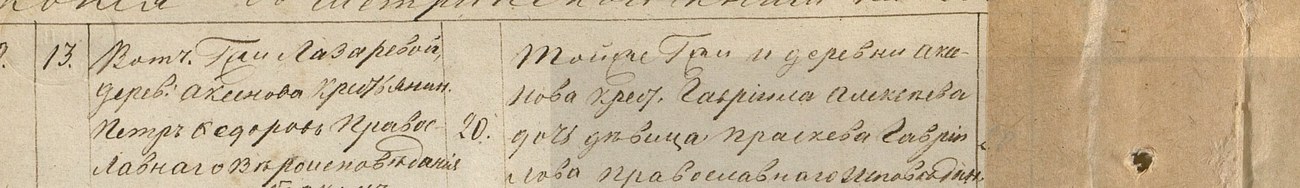 13. Вотч. Гжи Лазаревой,
дерев: Аксенова Крестьянин.
Петръ Ѳедоровъ Правос-
лавнаго Вѣроисповѣданія
20.
Тойже Гжи и деревни Аксе-
нова Крест. Гавріила Алексѣева
дочь дѣвица Праскева Гаврі-
лова Православнаго